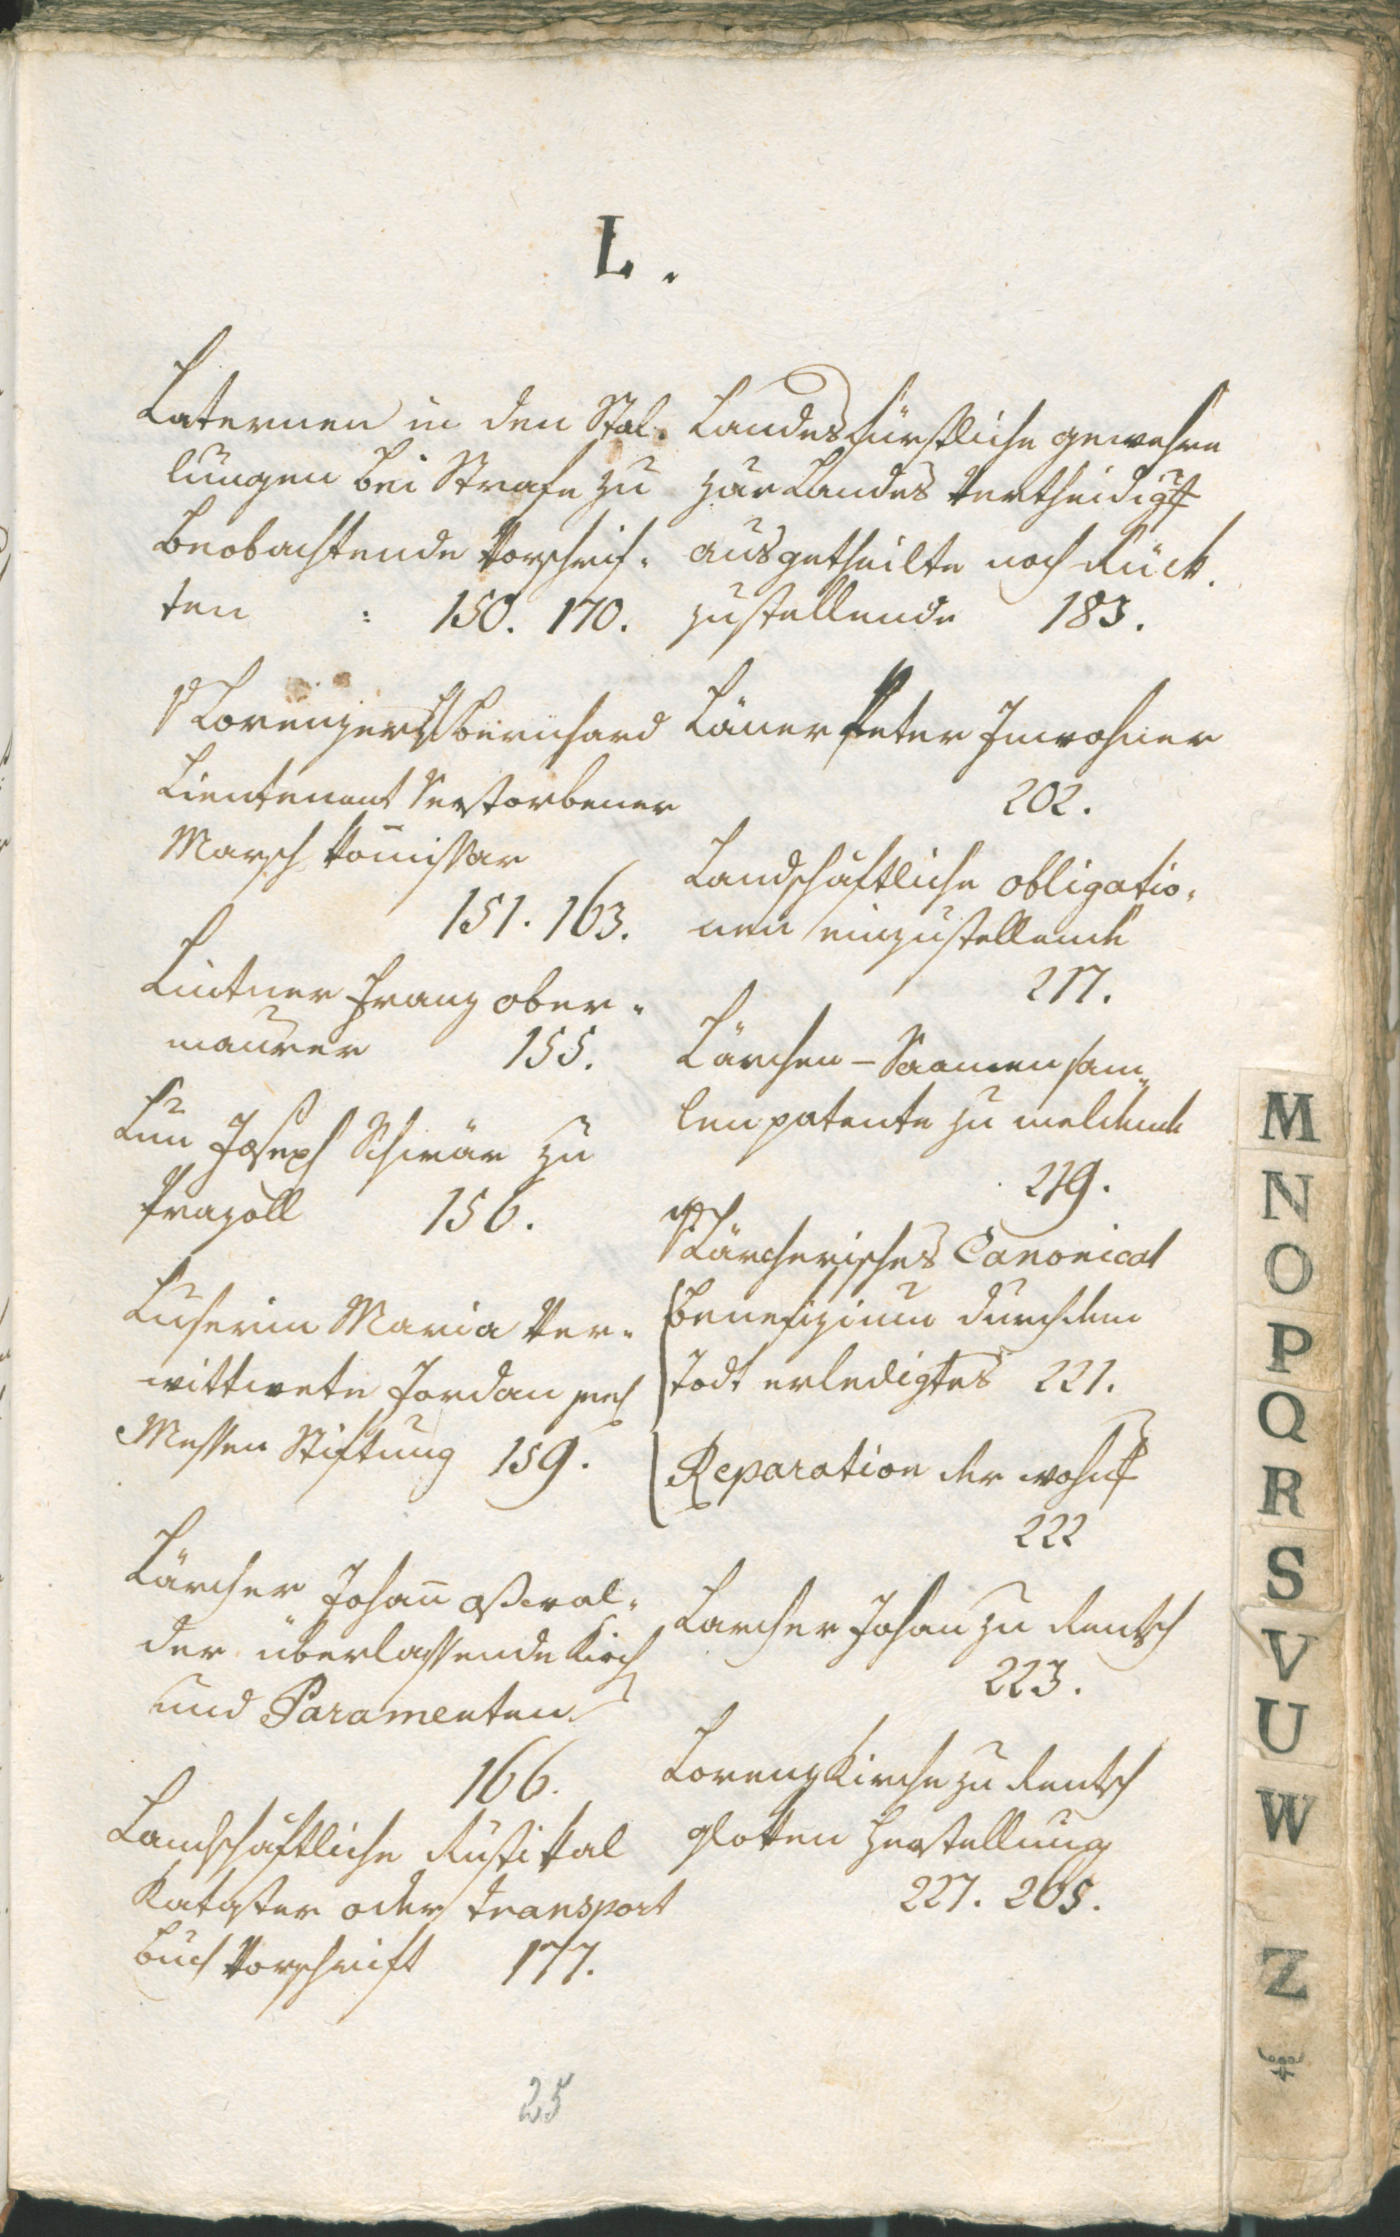 L.
Laternen in den Stal-
lungen bei Strafe zu
beobachtende Vorschrif-
ten : 150. 170.
Lorenzer Bernhard
Lientenant Verstorbener
Marsch Komissar
151. 163.
Lintner Franz ober-
maurer 155.
Lun Joseph zu
Prazöll 156.
Luserin Maria Ver-
wittwete Jordan
Messen Stiftung 159.
Lärcher Johan̄ oswal-
der überlassende Kirch
und Paramenten
166.
Landschäftliche Rustikal
Kataster oder transport
buch Vorschrift 177.
Landesfürstliche gewehre
zur Landes Vertheidigg
ausgetheilte noch Rück-
zustellende 183.
Läner Peter Inwohner
202.
Landschäftliche obligatio-
nen einzustellende
217.
Lärchen-Saamen sam-
len patente zu meldende
219.
Lärcherisches Canonical
Benefizium durch den
Todt erledigtes 221.
Reparation der
222
Larcher Johan zu Rentsch
223.
Lorenz Kirche zu Rentsch
gloken Herstellung
227. 265.
25
M
N
O
P
Q
R
S
V
U
W
Z